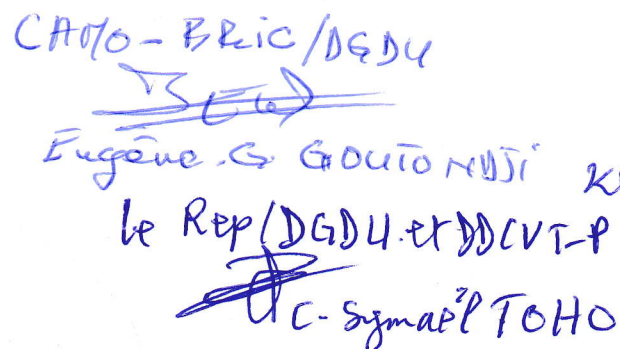 CAMO-BRIC/DGDU
Eugène.G. GOUTONDJI
Le Rep/DGDU.et DDCVT-P
C- Symaël TOHO